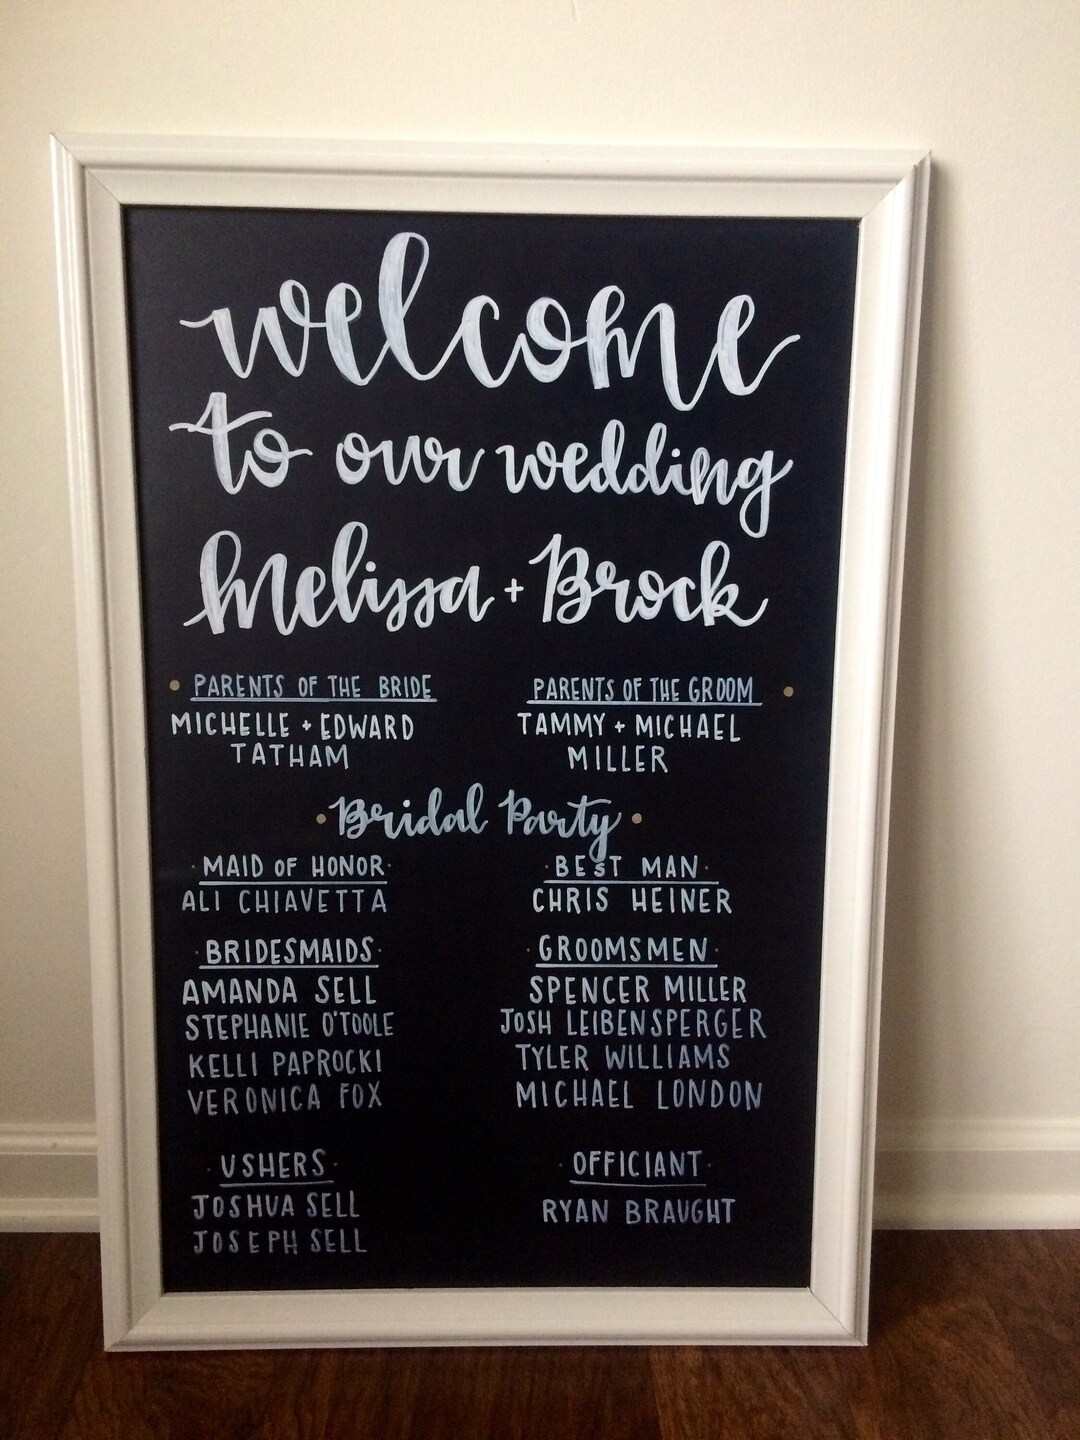 welcome
to our wedding
Melissa + Brock
PARENTS OF THE BRIDE
MICHELLE + EDWARD
TATHAM
PARENTS OF THE GROOM
TAMMY + MICHAEL
MILLER
Bridal Party
MAID OF HONOR
ALI CHIAVETTA
BEST MAN
CHRIS HEINER
BRIDESMAIDS
AMANDA SELL
STEPHANIE O'TOOLE
KELLI PAPROCKI
VERONICA FOX
GROOMSMEN
SPENCER MILLER
JOSH LEIBENSPERGER
TYLER WILLIAMS
MICHAEL LONDON
USHERS
JOSHUA SELL
JOSEPH SELL
OFFICIANT
RYAN BRAUGHT